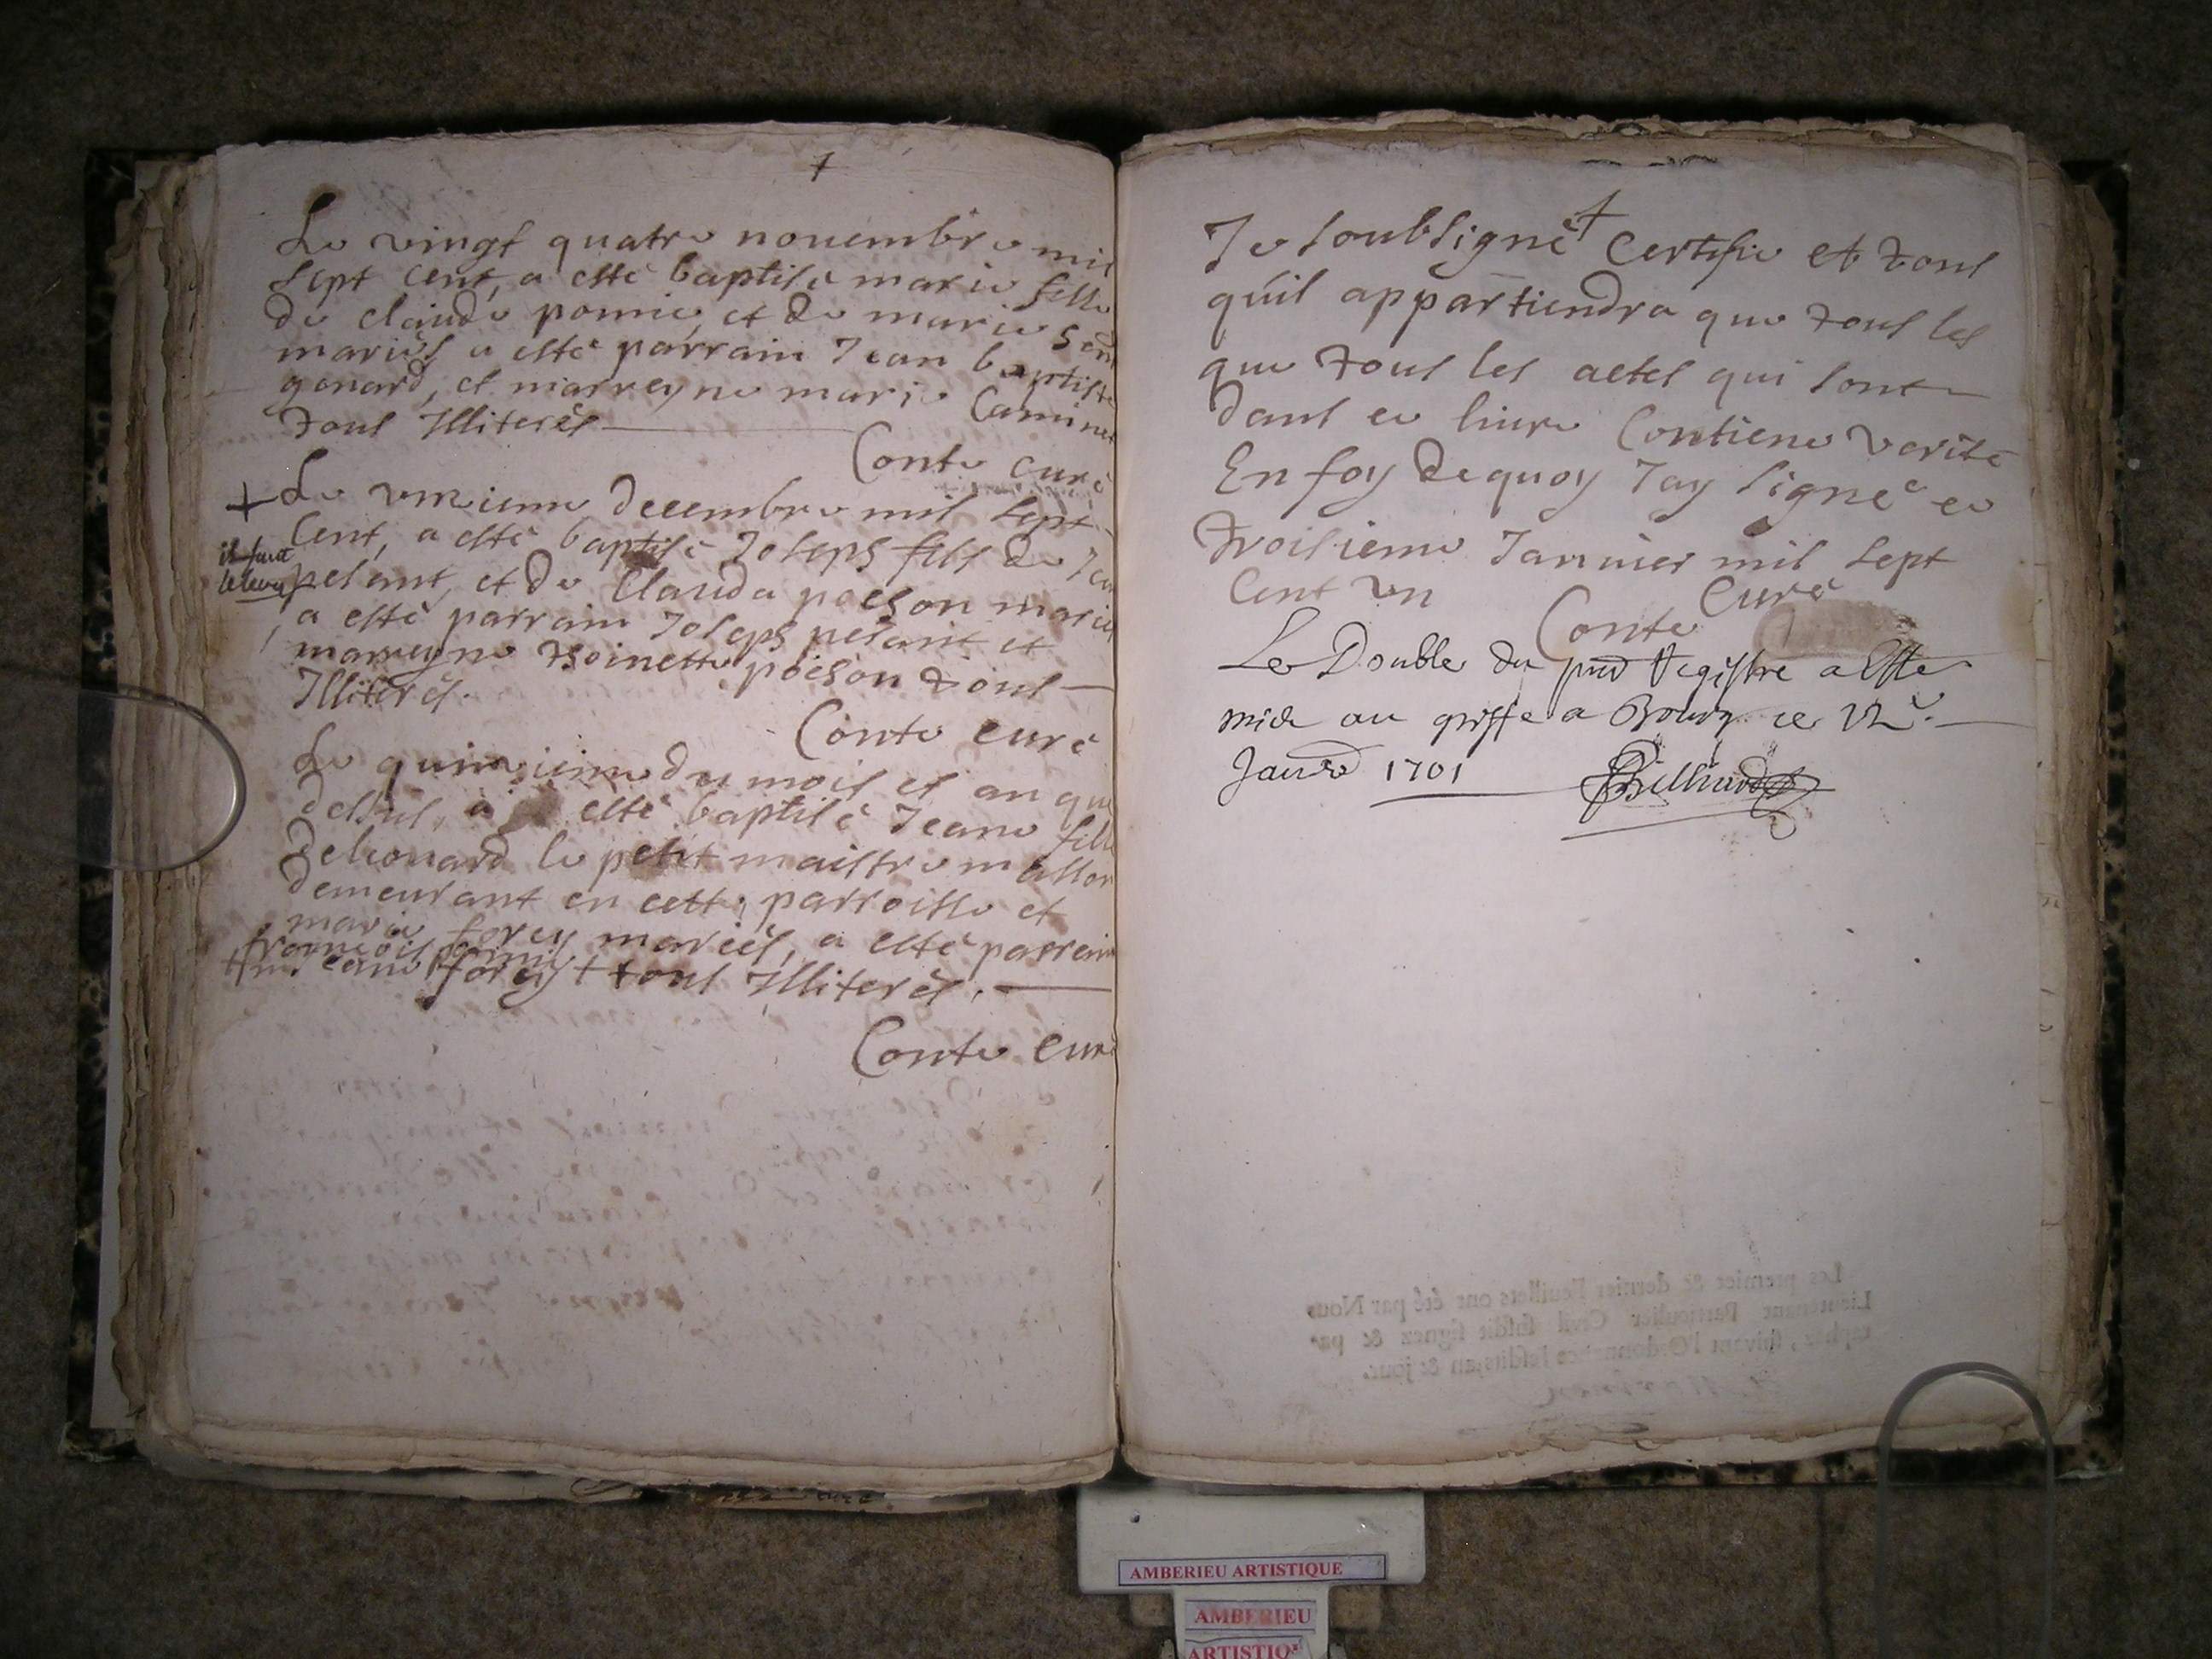 Le vingt quatre nouembre mil
sept cent, a esté baptisé marie fille
de claude pomie, et de marie
mariés a esté parrain Jean baptiste
gonard, et marreyne marie Camine
tous Illiterés
Conte curé
+ Le unzieme decembre mil sept
cent, a esté baptisé Joseph fils de Jean
il faut
pesant, et de Clauda poeson mariés
a esté parrain Joseph pesant et
marreyne Toinette poeson tous
Illiterés.
Conte curé
Le quinzieme du mois et an que
dessus, a esté baptisé Jeane fille
de leonard le petit maistre masson
demeurant en cette parroisse et
marie forey mariés, a esté parrain
francois
Jeane forey + tous Illiterés.
Conte curé
Je soubsigné certifie et tous
quil appartiendra que tous les
que tous les actes qui sont
dans ce liure Contiene verité
En foy dequoy Jay signé ce
troisieme Januier mil sept
cent un
Conte Curé
Le Double du pnt Registre a Esté
mis au greffe a Bourg ce
Janr 1701
Les premier & dernier Feuillets ont été par Nous
Lieutenant Particulier Civil susdit signez & pa-
raphez, suivant l'Ordonnance lesdits an & jour.
AMBERIEU ARTISTIQUE
AMBERIEU
ARTISTIQ